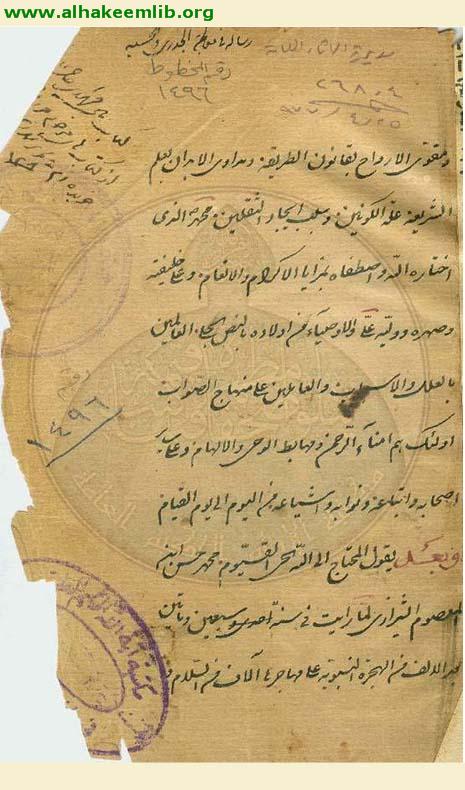 www.alhakeemlib.org
رسالة في معالجة الجدري والحصبة
رقم المخطوط
١٤٩٦
٢٦٨٠٤
ومقوي الارواح بقانون الطريقة ومداوي الابدان بعلم
الشريعة علة الكونين وسبب ايجاد الثقلين محمد الذي
اختاره الله واصطفاه بمزايا الاكرام والانعام وعلى خليفته
وصهره ووليه علي والاوصياء من اولاده بالنص الجلي العالمين
بالعلل والاسباب والعاملين على منهاج الصواب
١٤٩٦
اولئك هم امناء الرحمن ومهابط الوحي والالهام وعلى
اصحابه واتباعه ونوابه واشياعه من اليوم الى يوم القيام
وبعد يقول المحتاج الى الله الحي القيوم محمد حسن ابن
المعصوم الشيرازي لما رايت في سنة احدى وسبعين ومأتين
بعد الالف من الهجرة النبوية على مهاجرها آلاف من السلام
مكتبة آية الله الحكيم